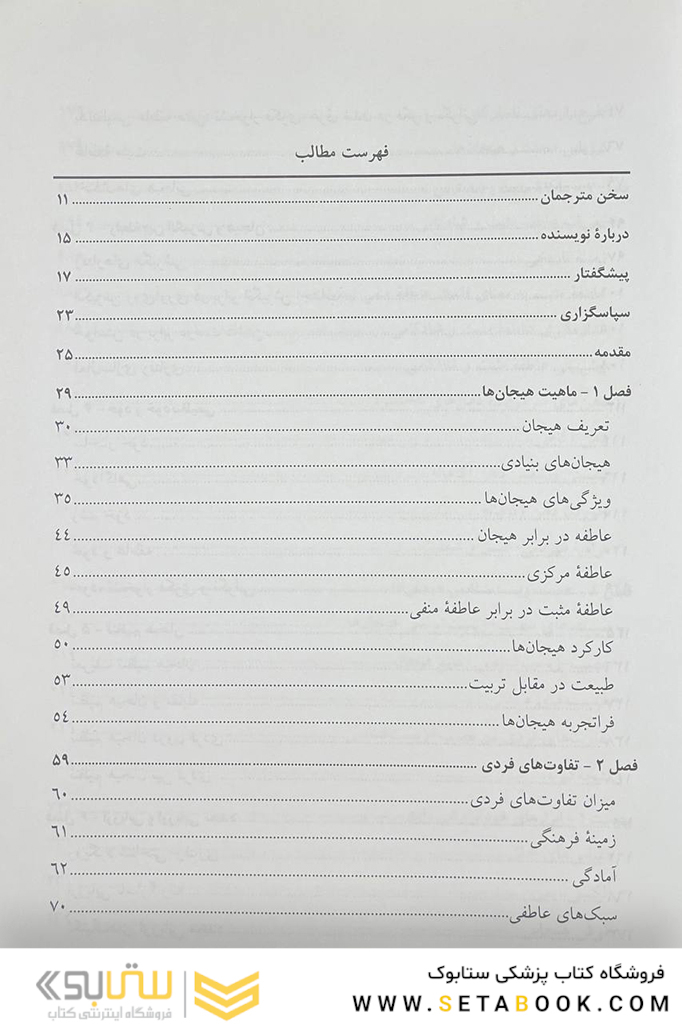 فهرست مطالب
سخن مترجمان ........ ۱۱
دربارهٔ نویسنده ........ ۱۵
پیشگفتار ........ ۱۷
سپاسگزاری ........ ۲۳
مقدمه ........ ۲۵
فصل ۱ - ماهیت هیجان‌ها ........ ۲۹
تعریف هیجان ........ ۳۰
هیجان‌های بنیادی ........ ۳۳
ویژگی‌های هیجان‌ها ........ ۳۵
عاطفه در برابر هیجان ........ ۴۴
عاطفهٔ مرکزی ........ ۴۵
عاطفهٔ مثبت در برابر عاطفهٔ منفی ........ ۴۹
کارکرد هیجان‌ها ........ ۵۰
طبیعت در مقابل تربیت ........ ۵۳
فراتجربه هیجان‌ها ........ ۵۴
فصل ۲ - تفاوت‌های فردی ........ ۵۹
میزان تفاوت‌های فردی ........ ۶۰
زمینهٔ فرهنگی ........ ۶۱
آمادگی ........ ۶۲
سبک‌های عاطفی ........ ۷۰
فروشگاه کتاب پزشکی ستابوک
WWW.SETABOOK.COM
ستابوک
فروشگاه اینترنتی کتاب